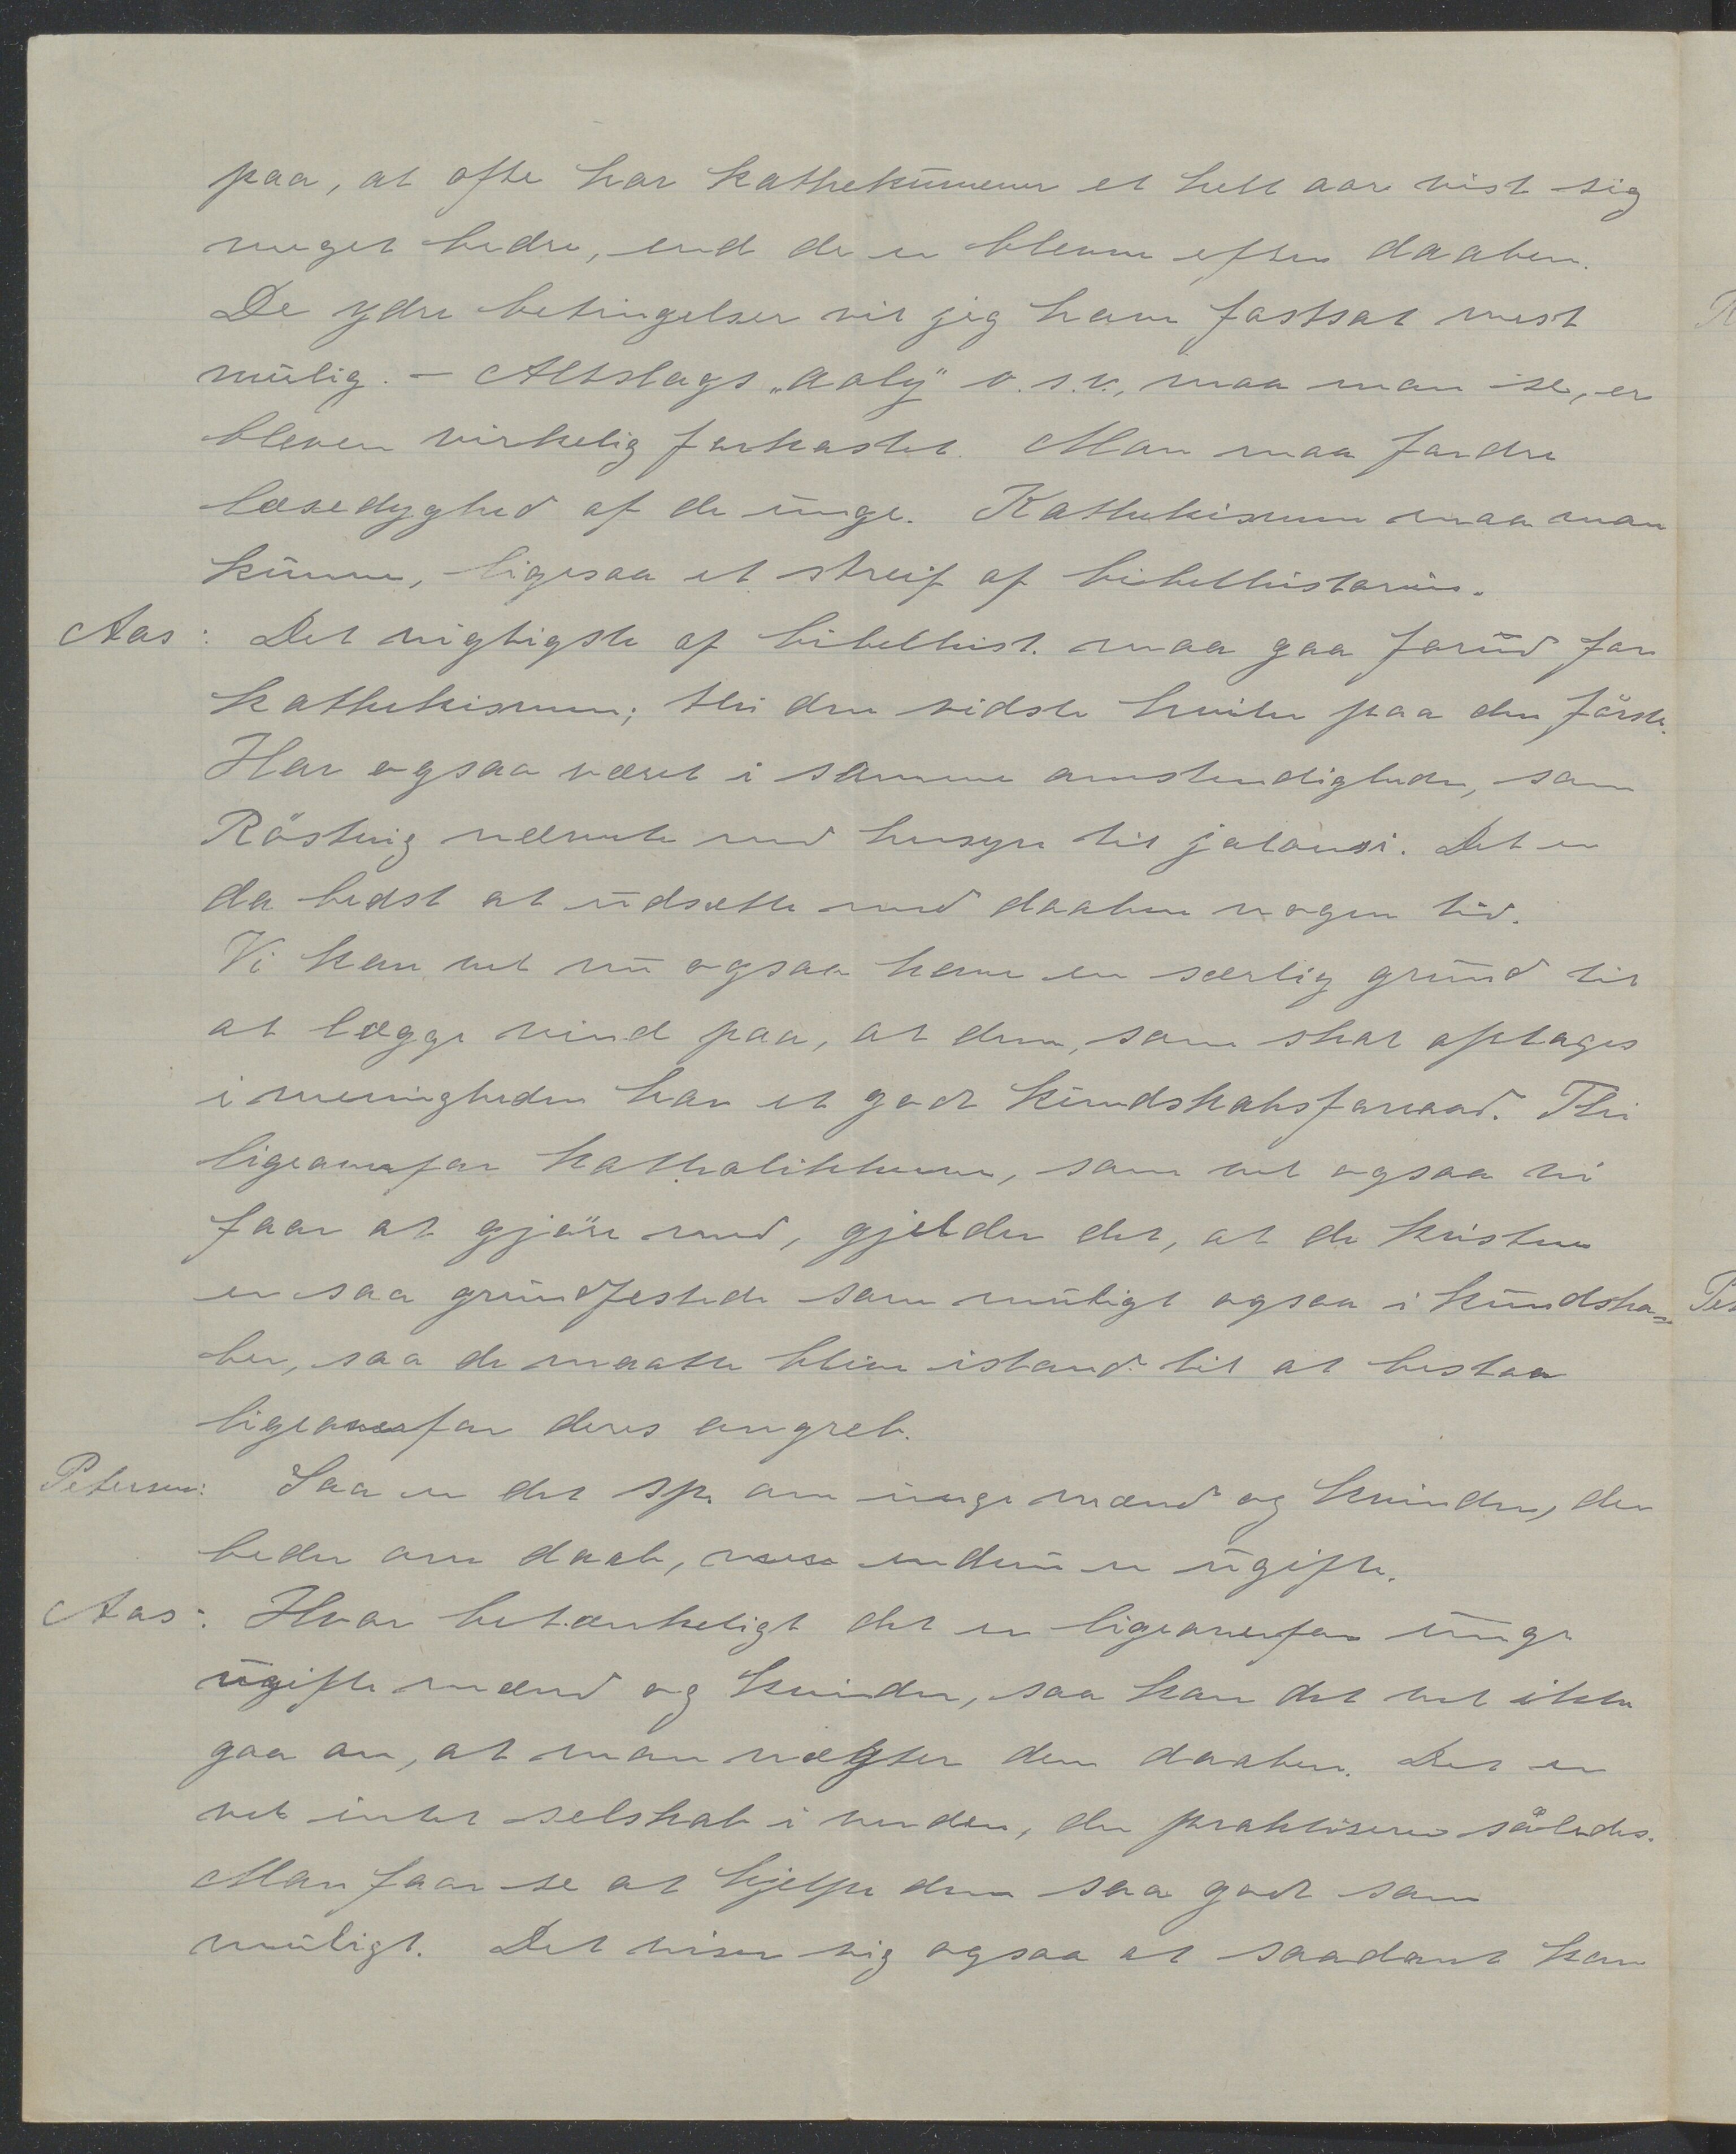 paa, at ofte har kathekümener et helt aar vist sig
meget bedre, end de er blevne efter daaben.
De ydre betingelser vil jeg have fastsat mest
mülig. – Altslags „aoly" o.s.v., maa man se, er
bleven virkelig forkastet. Man maa fordre
læsedyghed af de ünge. Kathekismen maa man
künne, ligesaa et streif af bibelhistorien.
Aas: Det vigtigste af bibelhist. maa gaa forüd for
kathekismen; thi den sidste hviler paa den förste.
Har ogsaa været i samme omstendigheder, som
Röstvig nævnte med hensyn til jalousi. Det er
da bedst at üdsætte med daaben nogen tid.
Vi kan vel nü ogsaa have en særlig gründ til
at lægge vind paa, at dem, som skal optages
i menigheden har et godt kündskabsforraad. Thi
ligeoverfor katholikkerne, som vel ogsaa vi
faar at gjöre med, gjelder det, at de kristne
er saa gründfestede som müligt ogsaa i kündska=
ber, saa de maatte blive istand til at bestaa
ligeoverfor deres angreb.
Petersen: Saa er det sp. om ünge mænd og kvinder, der
beder om daab, endnü er ügifte.
Aas: Hvor betænkeligt det er ligeoverfor ünge
ügifte mænd og kvinder, saa kan det vel ikke
gaa an, at man nægter dem daaben. Det er
vel intet selskab i verden, der praktiserer således.
Man faar se at hjelpe dem saa godt som
müligt. Det viser sig ogsaa at saadant kan